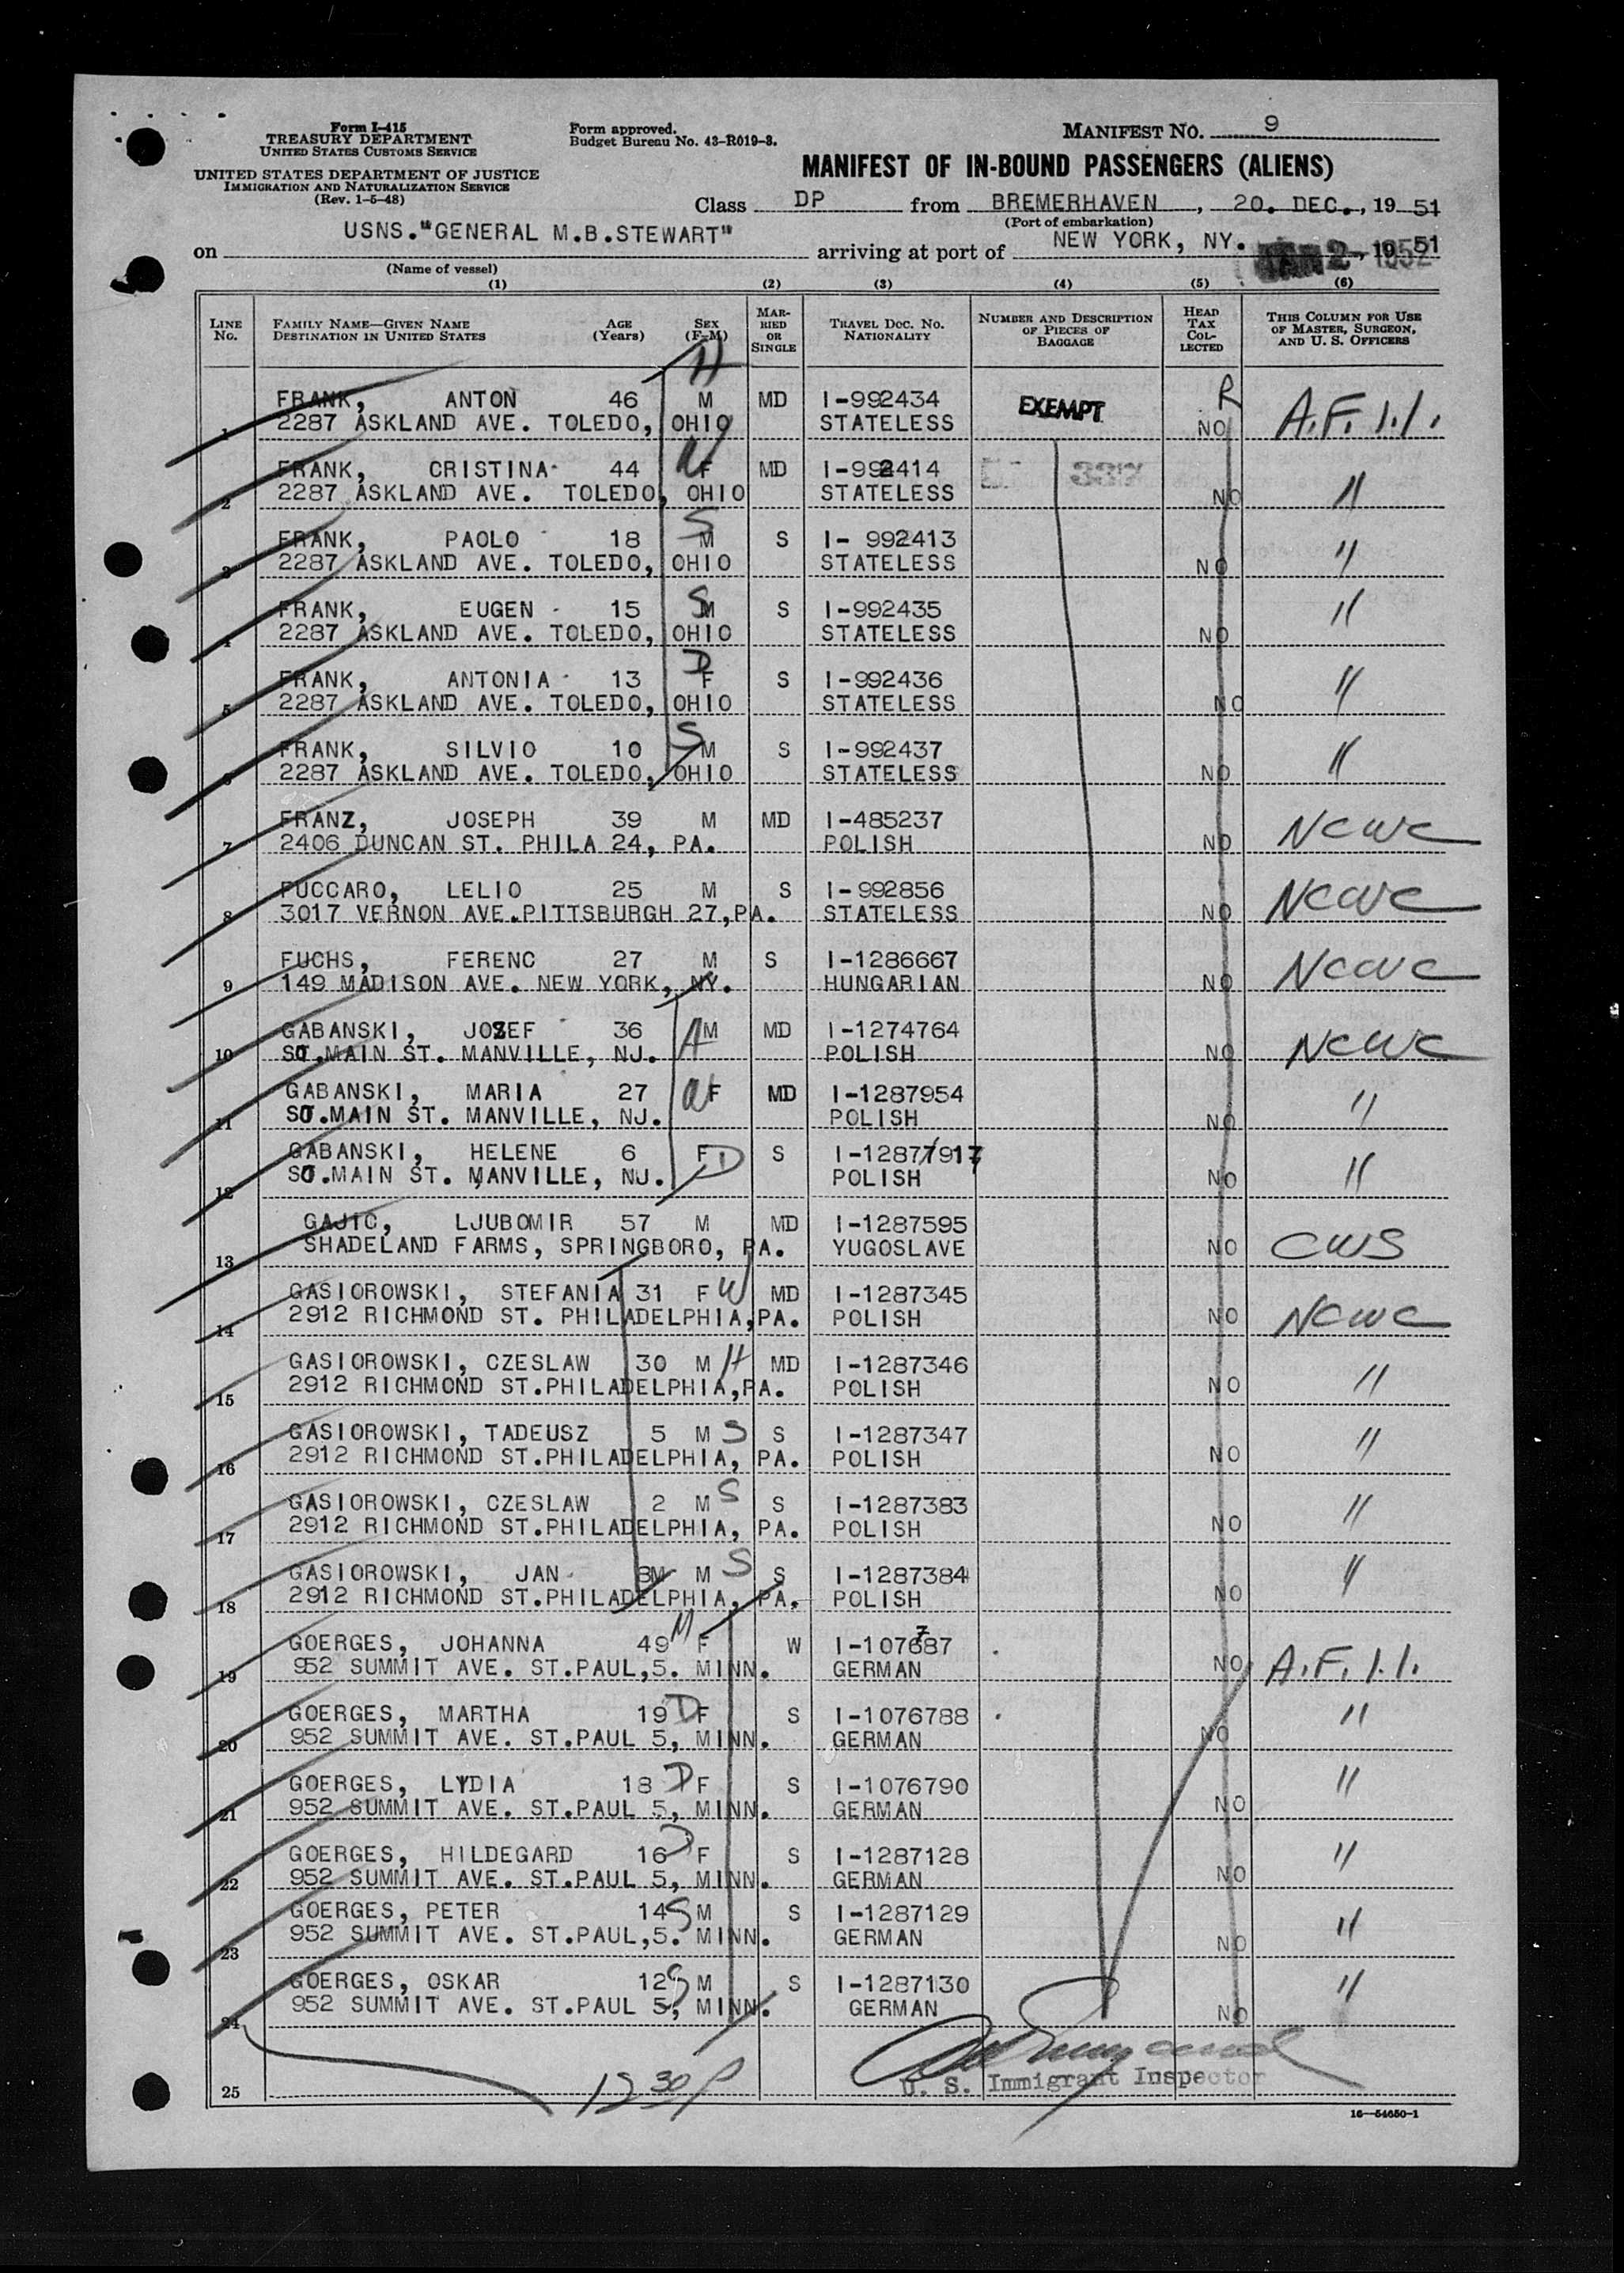 Form I-415
TREASURY DEPARTMENT
UNITED STATES CUSTOMS SERVICE
UNITED STATES DEPARTMENT OF JUSTICE
IMMIGRATION AND NATURALIZATION SERVICE
(Rev. 1-5-48)
Form approved.
Budget Bureau No. 43-R019-3.
MANIFEST NO. 9
MANIFEST OF IN-BOUND PASSENGERS (ALIENS)
Class DP from BREMERHAVEN, 20. DEC., 1951
(Port of embarkation)
on USNS."GENERAL M.B.STEWART" arriving at port of NEW YORK, NY. JAN 2 - 1952, 1951
(Name of vessel)
(1) (2) (3) (4) (5) (6)
LINE NO. FAMILY NAME—GIVEN NAME DESTINATION IN UNITED STATES AGE (Years) SEX (F-M) MARRIED OR SINGLE TRAVEL DOC. NO. NATIONALITY NUMBER AND DESCRIPTION OF PIECES OF BAGGAGE HEAD TAX COLLECTED THIS COLUMN FOR USE OF MASTER, SURGEON, AND U. S. OFFICERS
H
FRANK, ANTON 46 M MD I-992434 EXEMPT R A.F.I.I.
1 2287 ASKLAND AVE. TOLEDO, OHIO STATELESS NO
FRANK, CRISTINA 44 W F MD I-992414
2 2287 ASKLAND AVE. TOLEDO, OHIO STATELESS NO "
FRANK, PAOLO 18 S M S I- 992413
3 2287 ASKLAND AVE. TOLEDO, OHIO STATELESS NO "
FRANK, EUGEN 15 S M S I-992435
4 2287 ASKLAND AVE. TOLEDO, OHIO STATELESS NO "
FRANK, ANTONIA 13 D F S I-992436
5 2287 ASKLAND AVE. TOLEDO, OHIO STATELESS NO "
FRANK, SILVIO 10 S M S I-992437
6 2287 ASKLAND AVE. TOLEDO, OHIO STATELESS NO "
FRANZ, JOSEPH 39 M MD I-485237
7 2406 DUNCAN ST. PHILA 24, PA. POLISH NO NCWC
FUCCARO, LELIO 25 M S I- 992856
8 3017 VERNON AVE.PITTSBURGH 27,PA. STATELESS NO NCWC
FUCHS, FERENC 27 M S I-1286667
9 149 MADISON AVE. NEW YORK, NY. HUNGARIAN NO NCWC
GABANSKI, JOZEF 36 H M MD I-1274764
10 SO.MAIN ST. MANVILLE, NJ. POLISH NO NCWC
GABANSKI, MARIA 27 W F MD I-1287954
11 SO.MAIN ST. MANVILLE, NJ. POLISH NO "
GABANSKI, HELENE 6 F D S I-1287917
12 SO.MAIN ST. MANVILLE, NJ. POLISH NO "
GAJIC, LJUBOMIR 57 M MD I-1287595
13 SHADELAND FARMS, SPRINGBORO, PA. YUGOSLAVE NO CWS
GASIOROWSKI, STEFANIA 31 F W MD I-1287345
14 2912 RICHMOND ST. PHILADELPHIA,PA. POLISH NO NCWC
GASIOROWSKI, CZESLAW 30 M H MD I-1287346
15 2912 RICHMOND ST.PHILADELPHIA,PA. POLISH NO "
GASIOROWSKI, TADEUSZ 5 M S S I-1287347
16 2912 RICHMOND ST.PHILADELPHIA, PA. POLISH NO "
GASIOROWSKI, CZESLAW 2 M S S I-1287383
17 2912 RICHMOND ST.PHILADELPHIA, PA. POLISH NO "
GASIOROWSKI, JAN 8M M S S I-1287384
18 2912 RICHMOND ST.PHILADELPHIA, PA. POLISH NO "
GOERGES, JOHANNA 49 M F W I-1076787
19 952 SUMMIT AVE. ST.PAUL,5. MINN. GERMAN NO A.F.I.I.
GOERGES, MARTHA 19 D F S I-1076788
20 952 SUMMIT AVE. ST.PAUL 5, MINN. GERMAN NO "
GOERGES, LYDIA 18 D F S I-1076790
21 952 SUMMIT AVE. ST.PAUL 5, MINN. GERMAN NO "
GOERGES, HILDEGARD 16 D F S I-1287128
22 952 SUMMIT AVE. ST.PAUL 5, MINN. GERMAN NO "
GOERGES, PETER 14 S M S I-1287129
23 952 SUMMIT AVE. ST.PAUL,5. MINN. GERMAN NO "
GOERGES, OSKAR 12 S M S I-1287130
24 952 SUMMIT AVE. ST.PAUL 5, MINN. GERMAN NO "
25 12 30 P U. S. Immigrant Inspector
16—54650-1